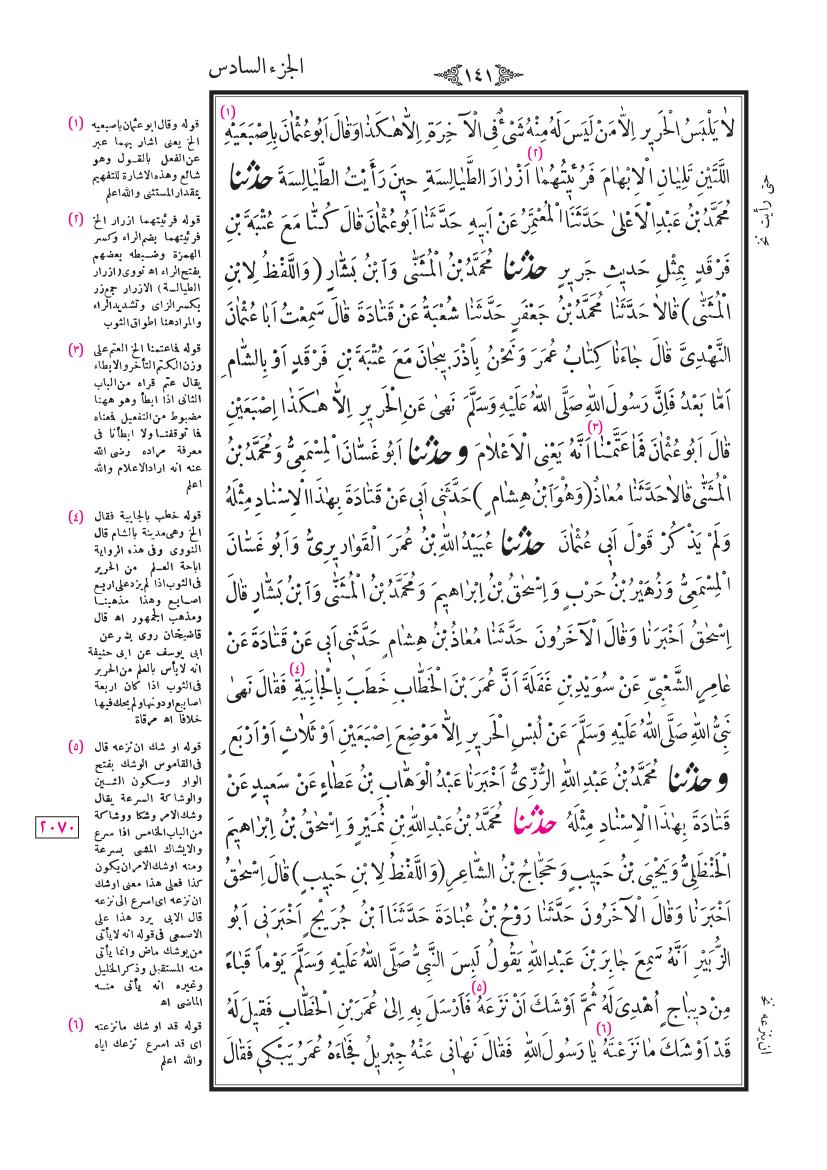 الجزء السادس
١٤١
لَا يَلْبَسُ الْحَرِيرَ اِلَّا مَنْ لَيْسَ لَهُ مِنْهُ شَىْءٌ فِى الْآخِرَةِ اِلَّا هٰكَذَا وَقَالَ اَبُوعُثْمَانَ بِاِصْبَعَيْهِ (١)
اللَّتَيْنِ تَلِيَانِ الْاِبْهَامَ فَرُئِيتُهُمَا (٢) اَزْرَارَ الطَّيَالِسَةِ حِينَ رَأَيْتُ الطَّيَالِسَةَ حدثنا
مُحَمَّدُ بْنُ عَبْدِ الْاَعْلٰى حَدَّثَنَا الْمُعْتَمِرُ عَنْ اَبِيهِ حَدَّثَنَا اَبُوعُثْمَانَ قَالَ كُنَّا مَعَ عُتْبَةَ بْنِ
فَرْقَدٍ بِمِثْلِ حَدِيثِ جَرِيرٍ حدثنا مُحَمَّدُ بْنُ الْمُثَنّٰى وَابْنُ بَشَّارٍ (وَاللَّفْظُ لِابْنِ
الْمُثَنّٰى) قَالَا حَدَّثَنَا مُحَمَّدُ بْنُ جَعْفَرٍ حَدَّثَنَا شُعْبَةُ عَنْ قَتَادَةَ قَالَ سَمِعْتُ اَبَا عُثْمَانَ
النَّهْدِىَّ قَالَ جَاءَنَا كِتَابُ عُمَرَ وَنَحْنُ بِاَذْرَبِيجَانَ مَعَ عُتْبَةَ بْنِ فَرْقَدٍ اَوْ بِالشَّامِ
اَمَّا بَعْدُ فَاِنَّ رَسُولَ اللّٰهِ صَلَّى اللّٰهُ عَلَيْهِ وَسَلَّمَ نَهٰى عَنِ الْحَرِيرِ اِلَّا هٰكَذَا اِصْبَعَيْنِ
قَالَ اَبُو عُثْمَانَ فَمَا عَتَّمْنَا (٣) اَنَّهُ يَعْنِى الْاَعْلَامَ وحدثنا اَبُو غَسَّانَ الْمِسْمَعِىُّ وَمُحَمَّدُ بْنُ
الْمُثَنّٰى قَالَا حَدَّثَنَا مُعَاذٌ (وَهُوَ ابْنُ هِشَامٍ) حَدَّثَنِى اَبِى عَنْ قَتَادَةَ بِهٰذَا الْاِسْنَادِ مِثْلَهُ
وَلَمْ يَذْكُرْ قَوْلَ اَبِى عُثْمَانَ حدثنا عُبَيْدُ اللّٰهِ بْنُ عُمَرَ الْقَوَارِيرِىُّ وَاَبُو غَسَّانَ
الْمِسْمَعِىُّ وَزُهَيْرُ بْنُ حَرْبٍ وَاِسْحٰقُ بْنُ اِبْرَاهِيمَ وَمُحَمَّدُ بْنُ الْمُثَنّٰى وَابْنُ بَشَّارٍ قَالَ
اِسْحٰقُ اَخْبَرَنَا وَقَالَ الْآخَرُونَ حَدَّثَنَا مُعَاذُ بْنُ هِشَامٍ حَدَّثَنِى اَبِى عَنْ قَتَادَةَ عَنْ
عَامِرٍ الشَّعْبِىِّ عَنْ سُوَيْدِ بْنِ غَفَلَةَ اَنَّ عُمَرَ بْنَ الْخَطَّابِ خَطَبَ بِالْجَابِيَةِ (٤) فَقَالَ نَهٰى
نَبِىُّ اللّٰهِ صَلَّى اللّٰهُ عَلَيْهِ وَسَلَّمَ عَنْ لُبْسِ الْحَرِيرِ اِلَّا مَوْضِعَ اِصْبَعَيْنِ اَوْ ثَلَاثٍ اَوْ اَرْبَعٍ
وحدثنا مُحَمَّدُ بْنُ عَبْدِ اللّٰهِ الرُّزِّىُّ اَخْبَرَنَا عَبْدُ الْوَهَّابِ بْنُ عَطَاءٍ عَنْ سَعِيدٍ عَنْ
قَتَادَةَ بِهٰذَا الْاِسْنَادِ مِثْلَهُ حدثنا مُحَمَّدُ بْنُ عَبْدِ اللّٰهِ بْنِ نُمَيْرٍ وَاِسْحٰقُ بْنُ اِبْرَاهِيمَ
الْحَنْظَلِىُّ وَيَحْيَى بْنُ حَبِيبٍ وَحَجَّاجُ بْنُ الشَّاعِرِ (وَاللَّفْظُ لِابْنِ حَبِيبٍ) قَالَ اِسْحٰقُ
اَخْبَرَنَا وَقَالَ الْآخَرُونَ حَدَّثَنَا رَوْحُ بْنُ عُبَادَةَ حَدَّثَنَا ابْنُ جُرَيْجٍ اَخْبَرَنِى اَبُو
الزُّبَيْرِ اَنَّهُ سَمِعَ جَابِرَ بْنَ عَبْدِ اللّٰهِ يَقُولُ لَبِسَ النَّبِىُّ صَلَّى اللّٰهُ عَلَيْهِ وَسَلَّمَ يَوْماً قَبَاءً
مِنْ دِيبَاجٍ اُهْدِىَ لَهُ ثُمَّ اَوْشَكَ اَنْ نَزَعَهُ (٥) فَاَرْسَلَ بِهِ اِلٰى عُمَرَ بْنِ الْخَطَّابِ فَقِيلَ لَهُ
قَدْ اَوْشَكَ مَا نَزَعْتَهُ (٦) يَا رَسُولَ اللّٰهِ فَقَالَ نَهَانِى عَنْهُ جِبْرِيلُ فَجَاءَهُ عُمَرُ يَبْكِى فَقَالَ
حتى رأيت نخ
ان ينزعه نخ
(١) قوله وقال ابو عثمان باصبعيه
الخ يعنى اشار بهما عبر
عن الفعل بالقول وهو
شائع وهذه الاشارة للتفهيم
بمقدار المستثنى والله اعلم
(٢) قوله فرئيتهما ازرار الخ
فرئيتهما بضم الراء وكسر
الهمزة وضبطه بعضهم
بفتح الراء اه نووى (ازرار
الطيالسة) الازرار جمع زر
بكسر الزاى وتشديد الراء
والمراد هنا اطواق الثوب
(٣) قوله فما عتمنا الخ العتم على
وزن الكتم التأخر والابطاء
يقال عتم قراه من الباب
الثانى اذا ابطأ وهو ههنا
مضبوط من التفعيل فمعناه
فما توقفنا ولا ابطأنا فى
معرفة مراده رضى الله
عنه انه اراد الاعلام والله
اعلم
(٤) قوله خطب بالجابية فقال
الخ وهى مدينة بالشام قال
النووى وفى هذه الرواية
اباحة العلم من الحرير
فى الثوب اذا لم يزد على اربع
اصابع وهذا مذهبنا
ومذهب الجمهور اه قال
قاضيخان روى بشر عن
ابى يوسف عن ابى حنيفة
انه لا بأس بالعلم من الحرير
فى الثوب اذا كان اربعة
اصابع او دونها ولم يحك فيها
خلافا اه مرقاة
(٥) قوله اوشك ان نزعه قال
فى القاموس الوشك بفتح
الواو وسكون الشين
والوشاكة السرعة يقال
وشك الامر وشكا ووشاكة
من الباب الخامس اذا سرع
والايشاك المشى بسرعة
ومنه اوشك الامر ان يكون
كذا فعلى هذا معنى اوشك
ان نزعه اى اسرع الى نزعه
قال الابى يرد هذا على
الاصمعى فى قوله انه لا يأتى
من يوشك ماض وانما يأتى
منه المستقبل وذكر الخليل
وغيره انه يأتى منه
الماضى اه
(٦) قوله قد اوشك ما نزعته
اى قد اسرع نزعك اياه
والله اعلم
٢٠٧٠